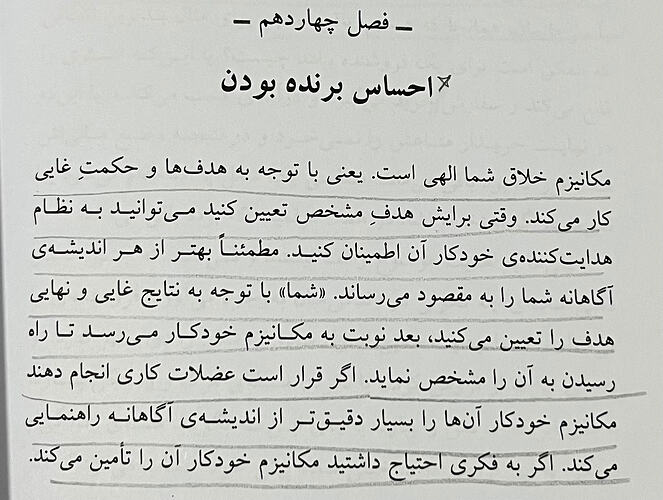 ـ فصل چهاردهم ـ
احساس برنده بودن
مکانیزم خلاق شما الهی است. یعنی با توجه به هدف‌ها و حکمتِ غایی
کار می‌کند. وقتی برایش هدفِ مشخص تعیین کنید می‌توانید به نظام
هدایت‌کننده‌ی خودکار آن اطمینان کنید. مطمئناً بهتر از هر اندیشه‌ی
آگاهانه شما را به مقصود می‌رساند. «شما» با توجه به نتایج غایی و نهایی
هدف را تعیین می‌کنید، بعد نوبت به مکانیزم خودکار می‌رسد تا راه
رسیدن به آن را مشخص نماید. اگر قرار است عضلات کاری انجام دهند
مکانیزم خودکار آن‌ها را بسیار دقیق‌تر از اندیشه‌ی آگاهانه راهنمایی
می‌کند. اگر به فکری احتیاج داشتید مکانیزم خودکار آن را تأمین می‌کند.